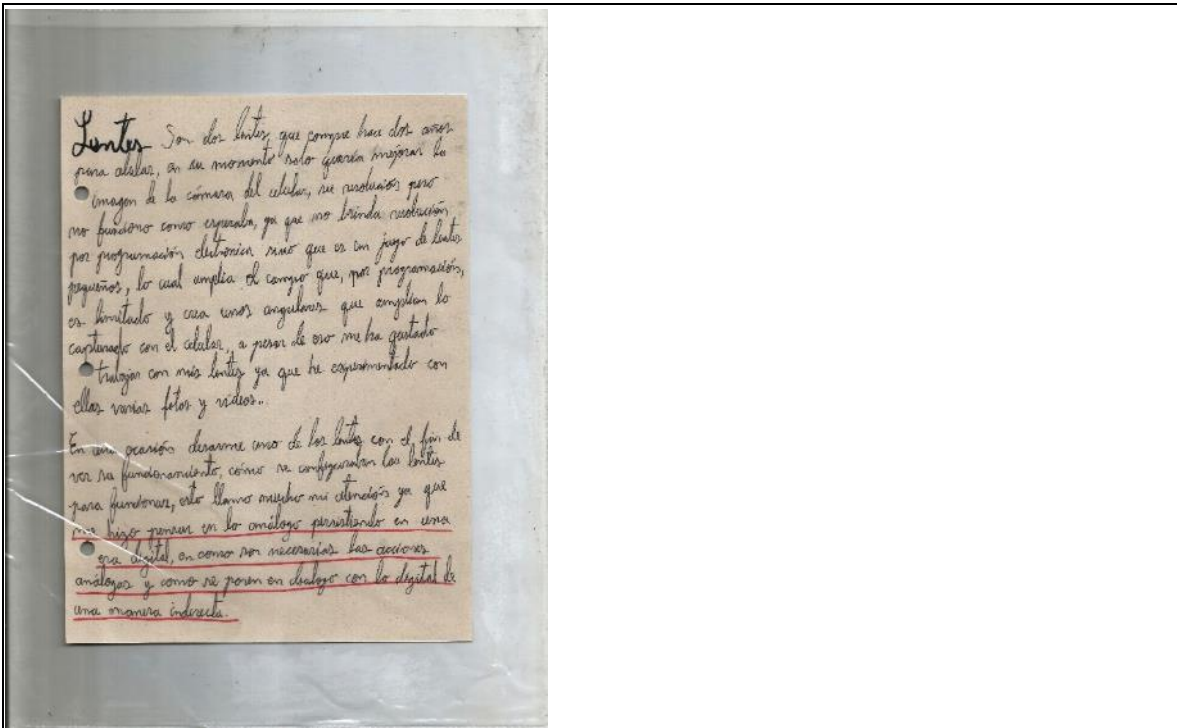 Lentes Son dos lentes que compre hace dos años
para celular, en su momento solo quería mejorar la
imagen de la cámara del celular, su resolución pero
no funciono como esperaba, ya que no brinda resolución
por programación electronica sino que es un juego de lentes
pequeños, lo cual amplia el campo que, por programación,
es limitado y crea unos angulares que amplian lo
capturado con el celular, a pesar de eso me ha gustado
trabajar con mis lentes ya que he experimentado con
ellos varias fotos y videos..
En una ocasión desarme uno de los lentes con el fin de
ver su funcionamiento, cómo se configuraban los lentes
para funcionar, esto llamo mucho mi atención ya que
me hizo pensar en lo análogo persistiendo en una
era digital, en como son necesarias las acciones
análogas y como se ponen en dialogo con lo digital de
una manera indirecta.